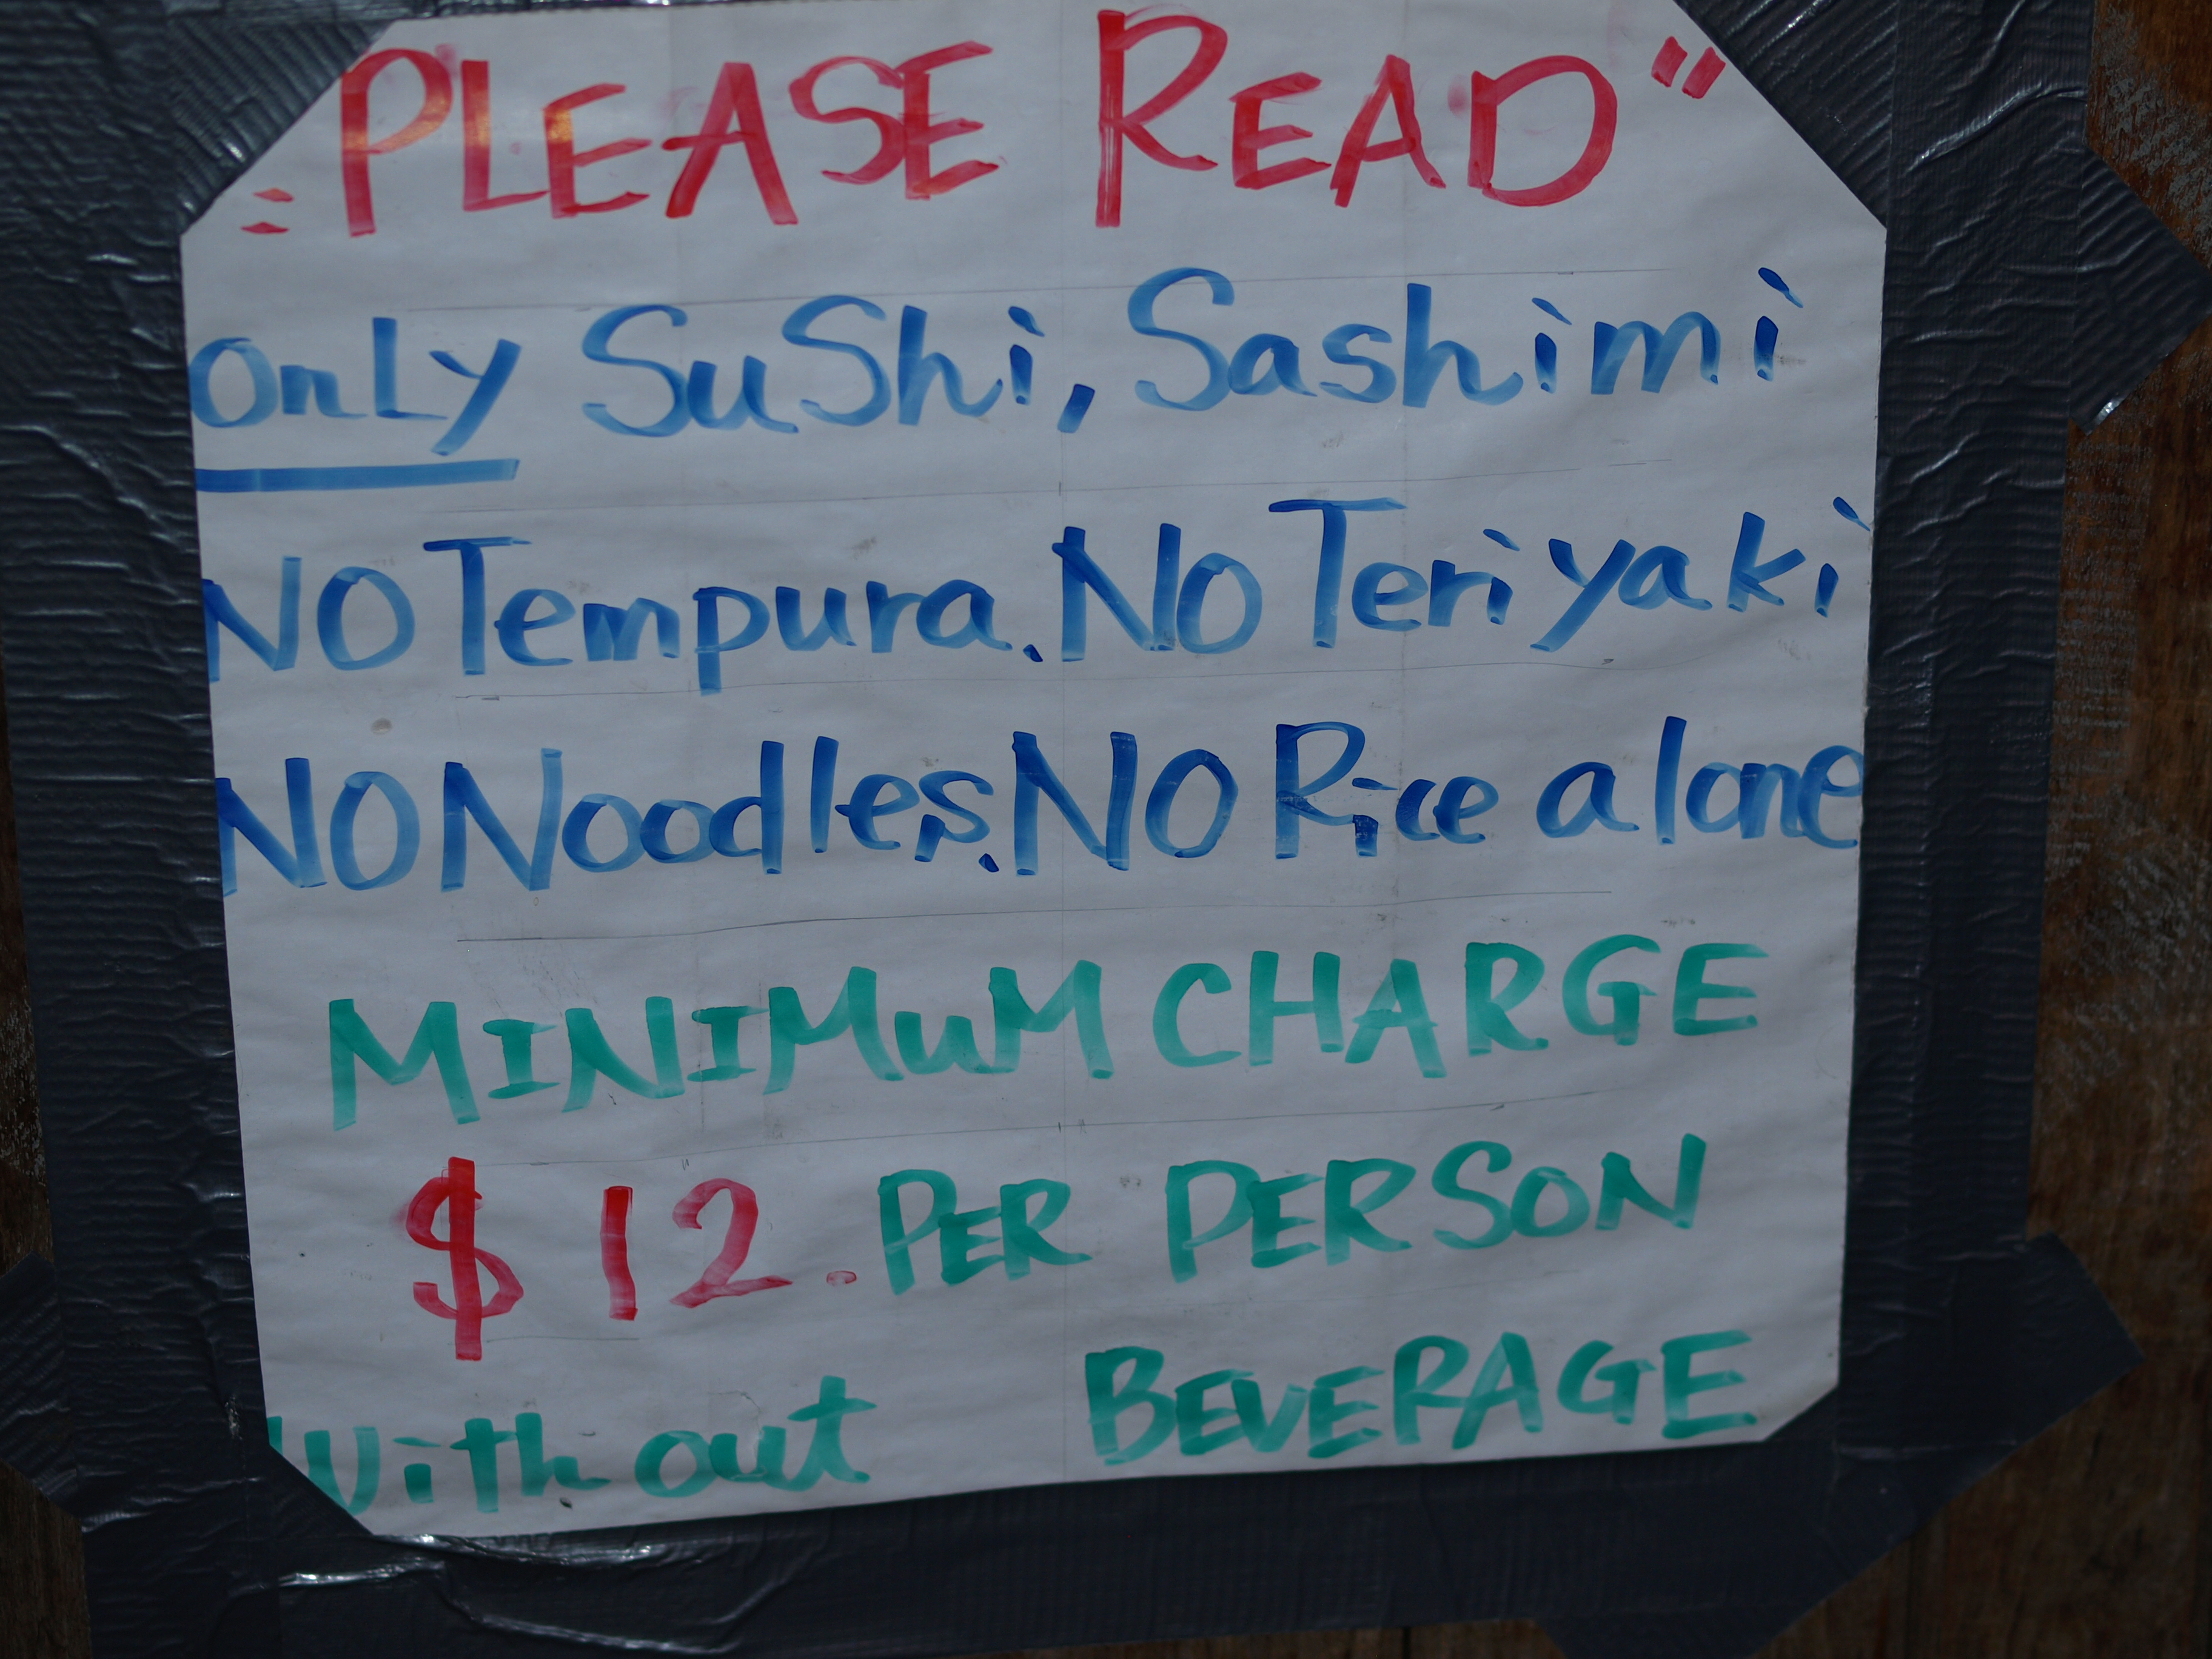 "PLEASE READ"
OnLy SuShi, Sashimi
NO Tempura. NO Teriyaki
NO Noodles. NO Rice alone
MINIMuM CHARGE
$12. PER PERSON
Without BEVERAGE